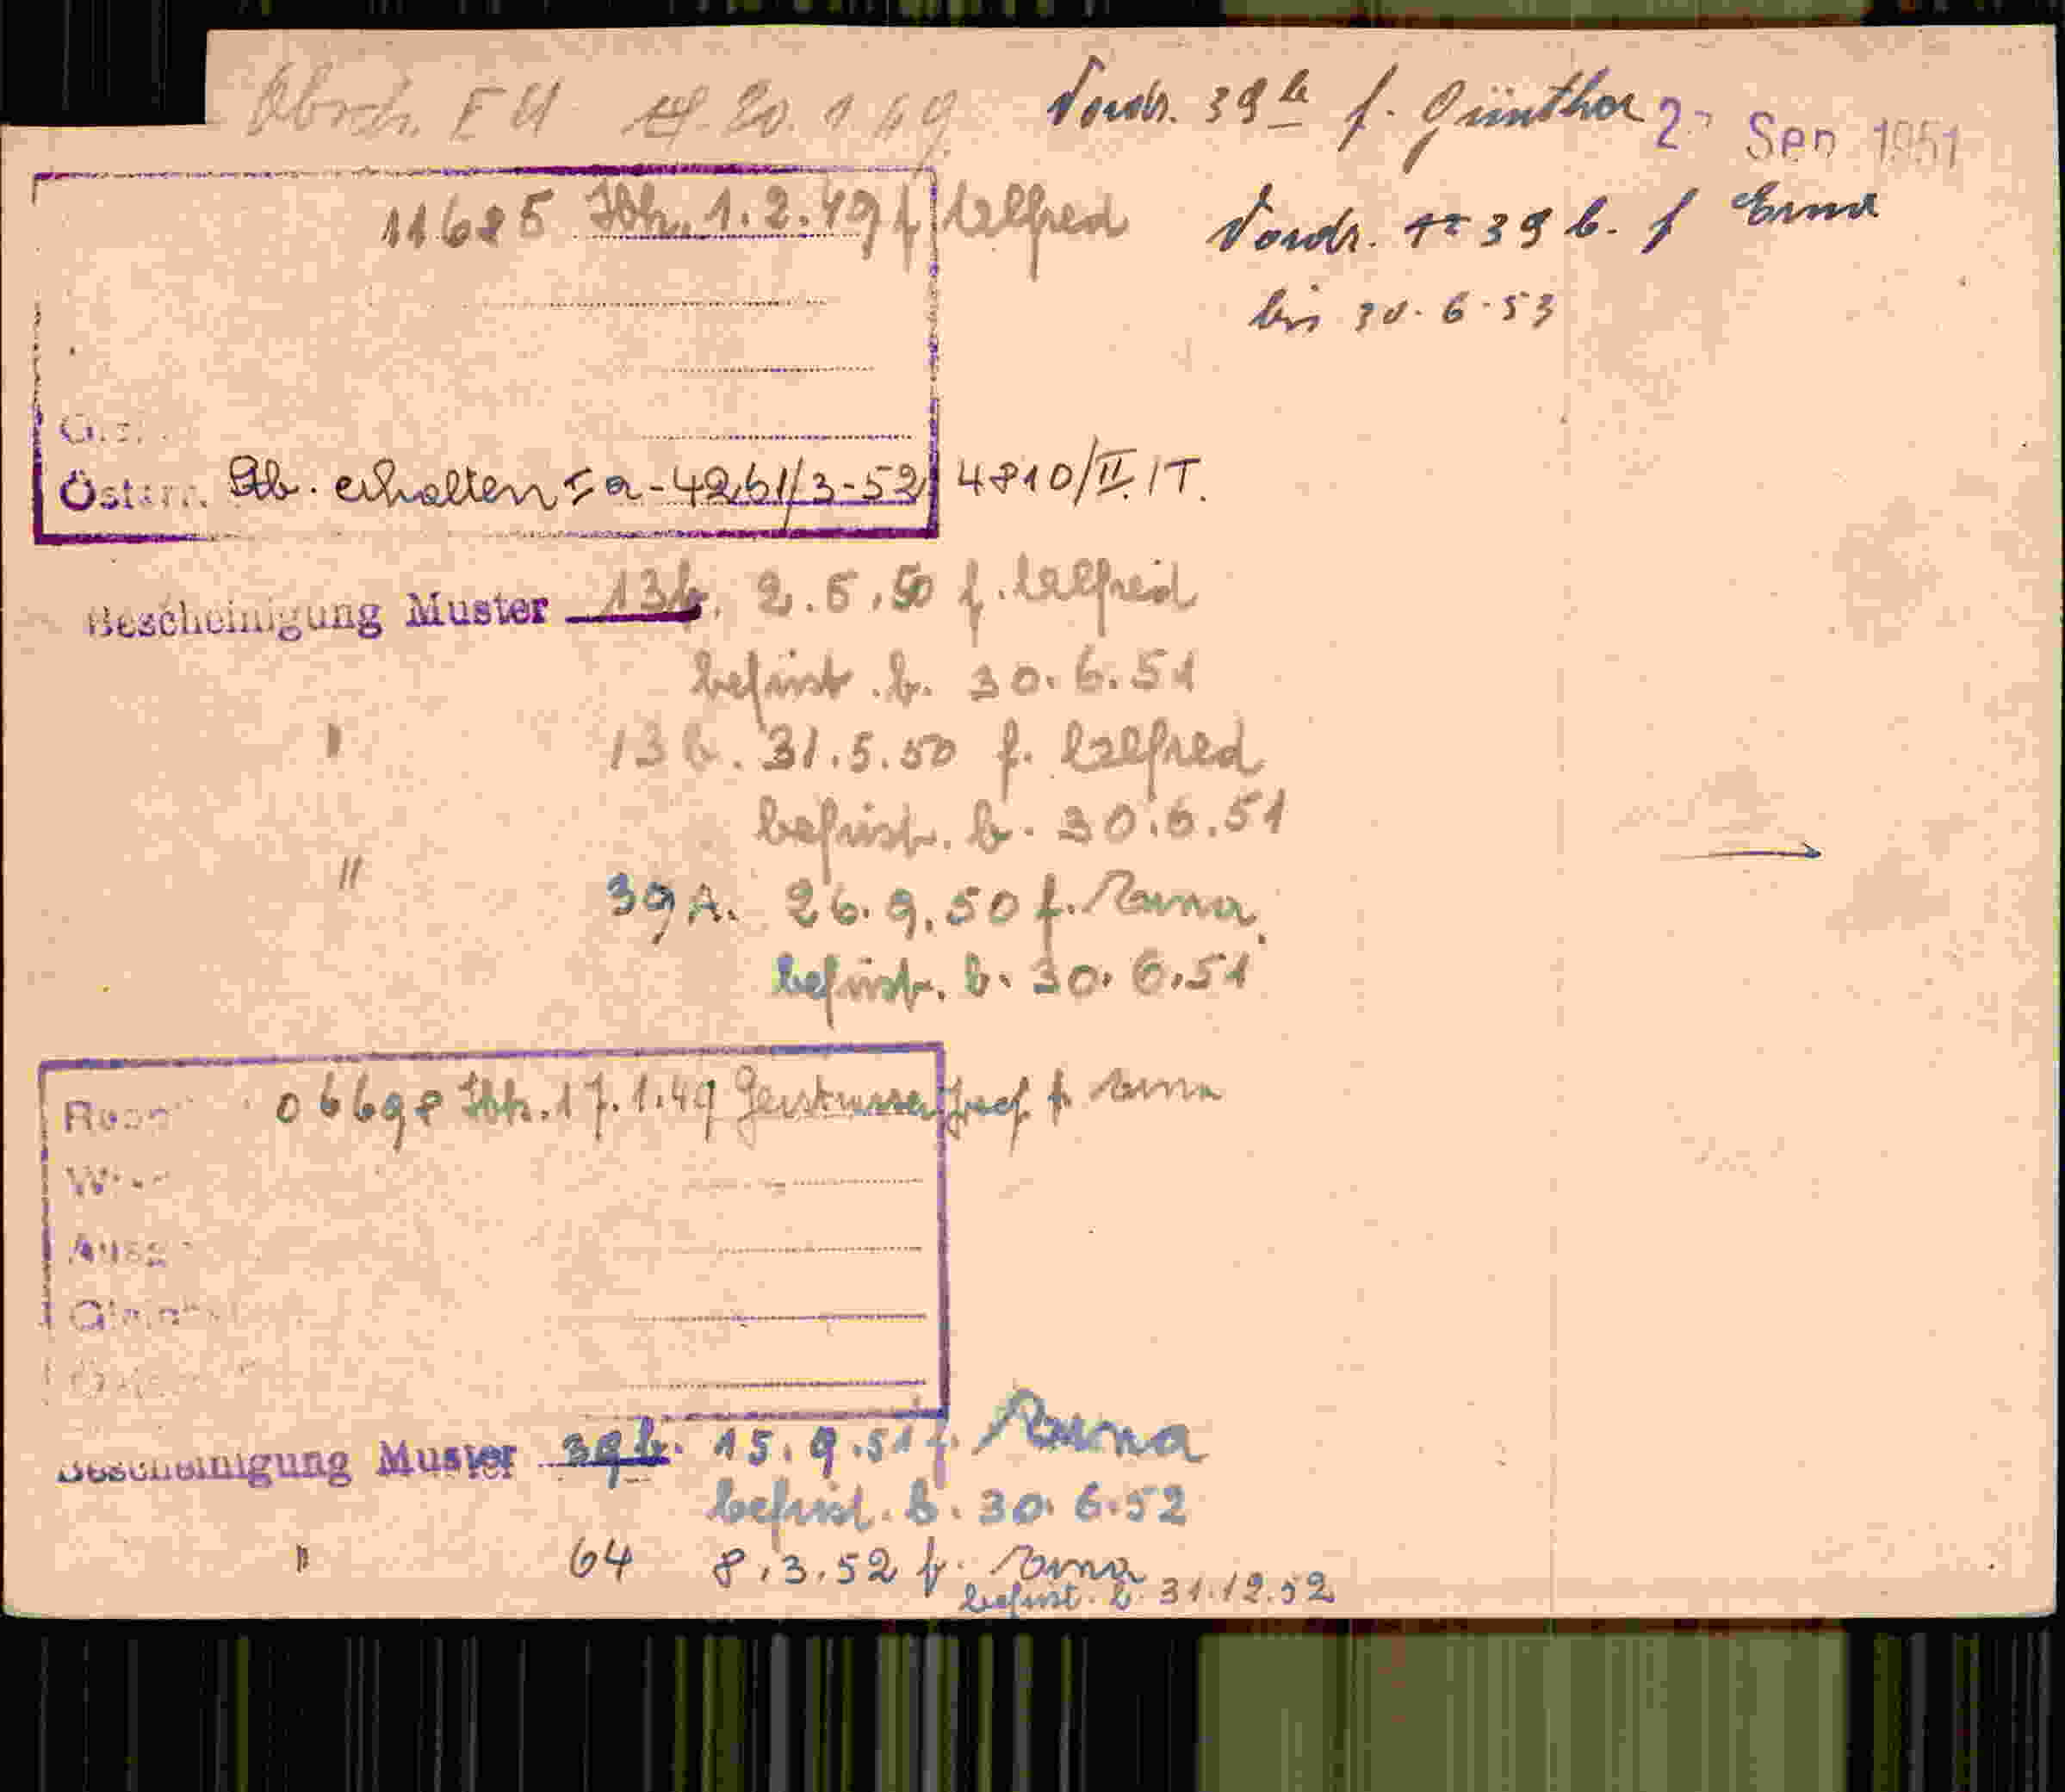 Abrch. E U 20. 1 49
Vordr. 39 b f. Günther 2 Sep 1951
11685 Ihh. 1.2.49 f Alfred
Vordr. 39 b. f Erna
bis 30.6.53
Österr. Stb. erhalten 5a-4261/3-52 4810/II/T.
Bescheinigung Muster 13b. 2.5.50 f. Alfred
befrist. b. 30.6.51
" 13 b. 31.5.50 f. Alfred
befrist. b. 30.6.51
" 39 A. 26.9.50 f. Erna
befrist. b. 30.6.51
06698 Ihh. 17.1.49 Josef f. Erna
Bescheinigung Muster 39b. 15.9.51 f. Erna
befrist. b. 30.6.52
" 64 8.3.52 f. Erna
befrist. b. 31.12.52